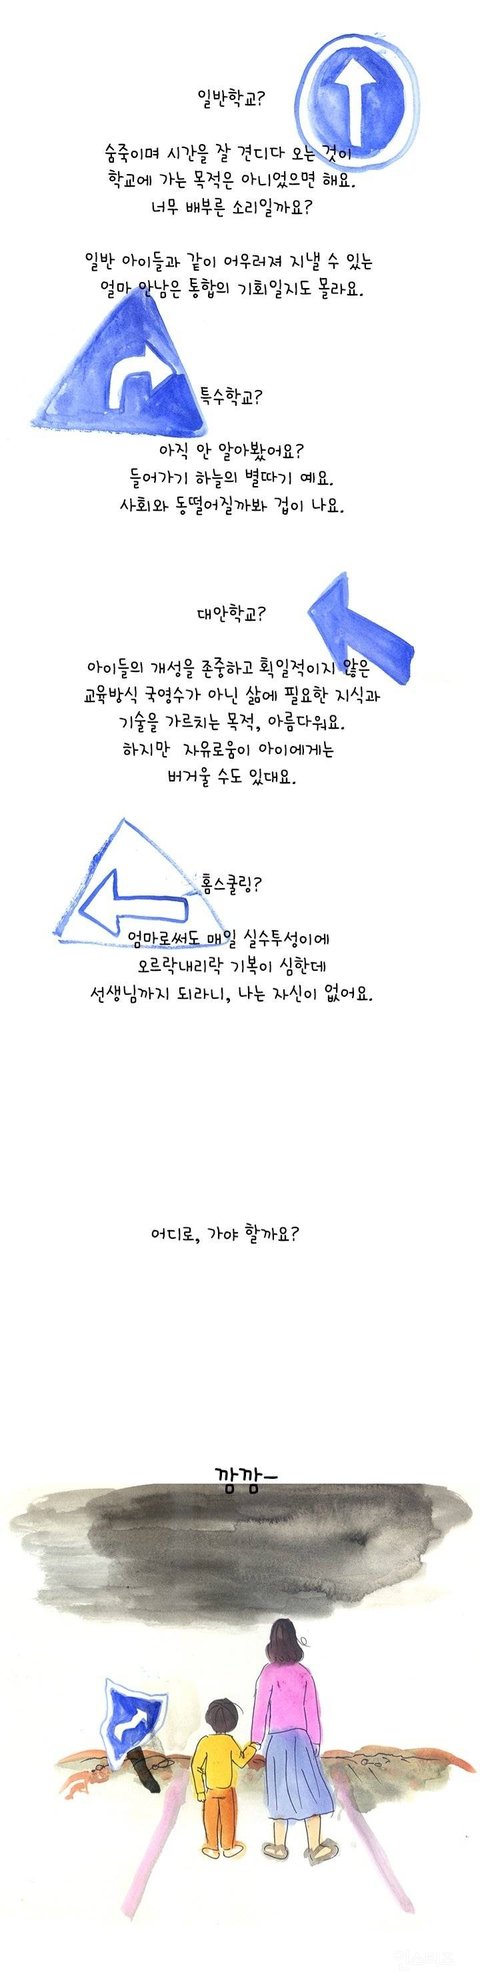 일반학교?
숨죽이며 시간을 잘 견디다 오는 것이
학교에 가는 목적은 아니었으면 해요.
너무 배부른 소리일까요?
일반 아이들과 같이 어우러져 지낼 수 있는
얼마 안남은 통합의 기회일지도 몰라요.
특수학교?
아직 안 알아봤어요?
들어가기 하늘의 별따기 예요.
사회와 동떨어질까봐 겁이 나요.
대안학교?
아이들의 개성을 존중하고 획일적이지 않은
교육방식 국영수가 아닌 삶에 필요한 지식과
기술을 가르치는 목적, 아름다워요.
하지만 자유로움이 아이에게는
버거울 수도 있대요.
홈스쿨링?
엄마로써도 매일 실수투성이에
오르락내리락 기복이 심한데
선생님까지 되라니, 나는 자신이 없어요.
어디로, 가야 할까요?
깜깜—
인스티즈